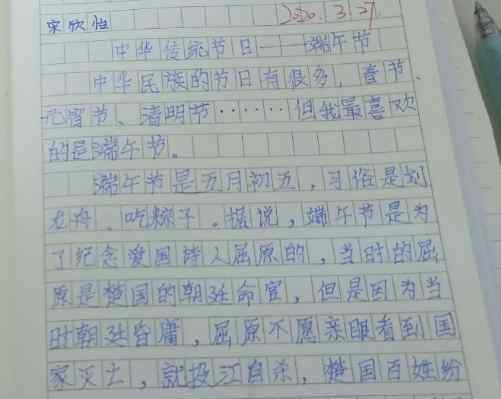 宋欣怡 2020.3.27.
中华传统节日——端午节
中华民族的节日有很多，春节、
元宵节、清明节······但我最喜欢
的是端午节。
端午节是五月初五，习俗是划
龙舟、吃粽子。据说，端午节是为
了纪念爱国诗人屈原的，当时的屈
原是楚国的朝廷命官，但是因为当
时朝廷昏庸，屈原不愿亲眼看到国
家灭亡，就投江自杀，楚国百姓纷